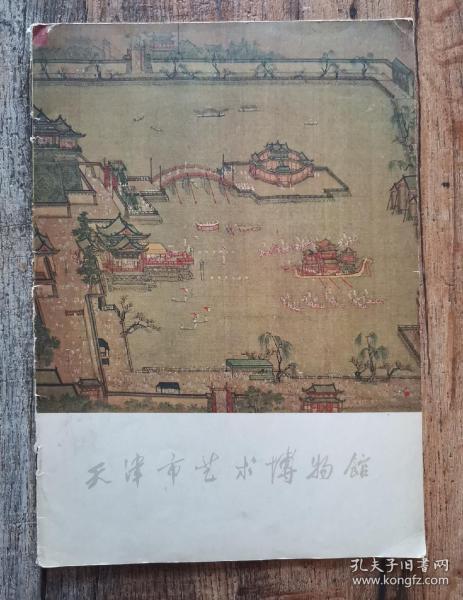 天津市艺术博物馆
孔夫子旧书网
www.kongfz.com